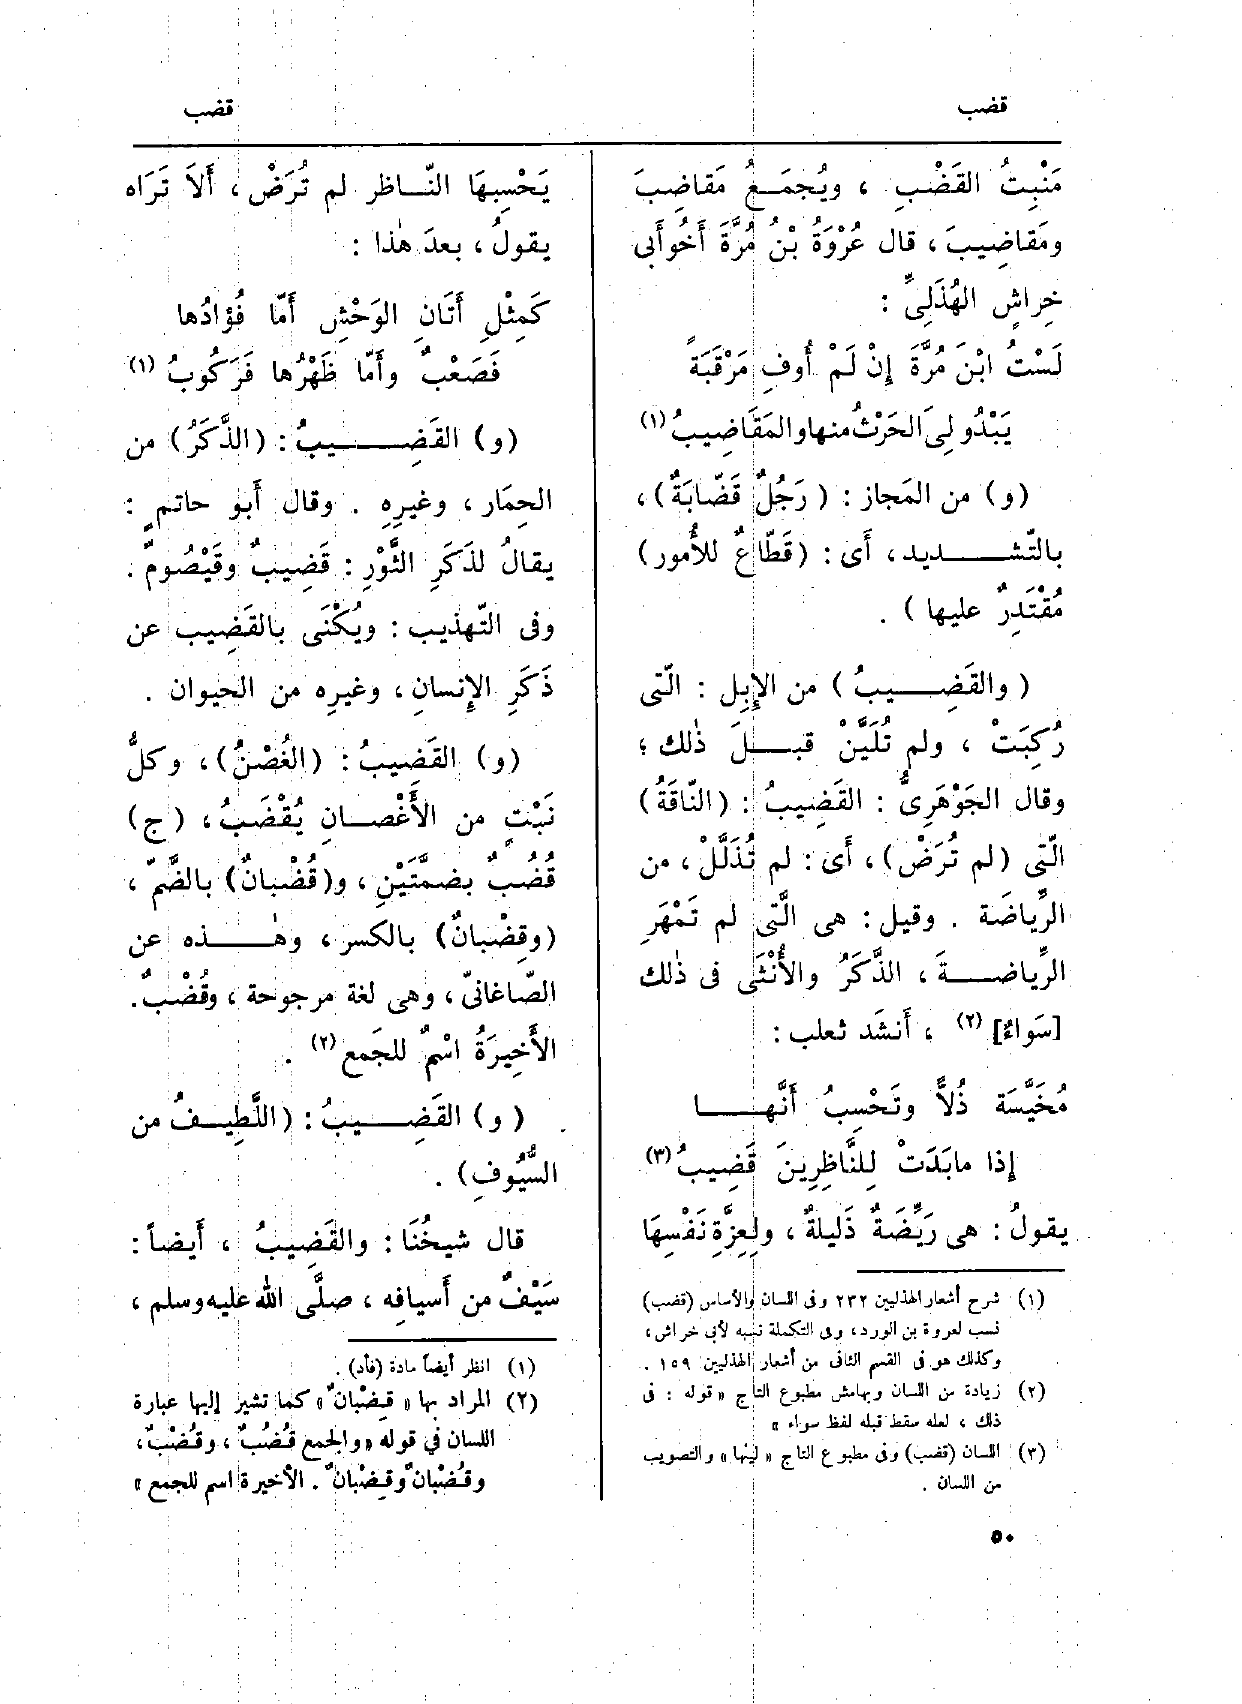 قضب
قضب
مَنْبِتُ القَضْبِ ، ويُجمَـعُ مَقاضِبَ
ومَقاضِيبَ ، قال عُرْوَةُ بْنُ مُرَّةَ أَخُو أَبى
خِراشٍ الهُذَلِىِّ :
لَسْتُ ابْنَ مُرَّةَ إِنْ لَمْ أُوفِ مَرْقَبَةً
يَبْدُو لِىَ الحَرْثُ منها والمَقَاضِيبُ (١)
(و) من المَجاز : (رَجُلٌ قَضّابَةٌ) ،
بالتّشـــديد ، أَى : (قَطّاعٌ للأُمور)
مُقْتَدِرٌ عليها) .
(والقَضِــيبُ) من الإِبِل : الّتى
رُكِبَتْ ، ولم تُلَيَّنْ قبــلَ ذٰلك ؛
وقال الجَوْهَرِىُّ : القَضِيبُ : (النّاقَةُ)
الّتى (لم تُرَضْ) ، أَى : لم تُذَلَّلْ ، من
الرِّياضَة . وقيل : هى الَّتى لم تَمْهَرِ
الرِّياضــةَ ، الذَّكَرُ والأُنْثَى فى ذٰلك
[سَواءٌ] (٢) ، أَنشَد ثعلب :
مُخَيَّسَة ذُلاًّ وتَحْسِبُ أَنَّهــا
إذا مابَدَتْ لِلنَّاظِرِينَ قَضِيبُ (٣)
يقولُ : هى رَيِّضَةٌ ذَلِيلةٌ ، ولِعِزَّةِ نَفْسِهَا
(١) شرح أشعار الهذليين ٢٣٢ وفى اللسان والأساس (قضب)
نسب لعروة بن الورد ، وفى التكملة نسبه لأبى خراش ،
وكذلك هو فى القسم الثانى من أشعار الهذليين ١٥٩ .
(٢) زيادة من اللسان وبهامش مطبوع التاج « قوله : فى
ذلك ، لعله سقط قبله لفظ سواء »
(٣) اللسان (قضب) وفى مطبوع التاج « لينها » والتصويب
من اللسان .
يَحْسِبهَا النّـاظر لم تُرَضْ ، أَلاَ تَرَاه
يقولُ ، بعدَ هٰذا :
كَمِثْلِ أَتَانِ الوَحْشِ أَمَّا فُؤادُها
فَصَعْبٌ وأَمّا ظَهْرُها فَرَكُوبُ (١)
(و) القَضِــيبُ : (الذَّكَرُ) من
الحِمَار ، وغيرِهِ . وقال أَبو حاتمٍ :
يقالُ لذَكَرِ الثَّوْرِ : قَضِيبٌ وقَيْصُومٌ .
وفى التّهذيب : ويُكْنَى بالقَضِيب عن
ذَكَرِ الإِنسانِ ، وغيرِه من الحيوان .
(و) القَضيبُ : (الغُصْنُ) ، وكلُّ
نَبْتٍ من الأَغْصــانِ يُقْضَبُ ، (ج)
قُضُبٌ بضمَّتَيْنِ ، و(قُضْبانٌ) بالضَّمّ ،
(وقِضْبانٌ) بالكسر ، وهٰــذه عن
الصّاغانىّ ، وهى لغة مرجوحة ، وقُضْبٌ .
الأَخِيرَةُ اسْمٌ للجَمع (٢) .
(و) القَضِــيبُ : (اللَّطِيــفُ من
السُّيُوفِ) .
قال شيخُنَا : والقَضِيبُ ، أَيضاً :
سَيْفٌ من أَسيافِه ، صلَّى الله عليه وسلم ،
(١) انظر أيضاً مادة (فأد) .
(٢) المراد بها « قِضْبانٌ » كما تشير إليها عبارة
اللسان في قوله « والجمع قُضُبٌ ، وقُضْبٌ ،
وقُضْبانٌ وقِضْبانٌ . الأخيرة اسم للجمع »
٥٠